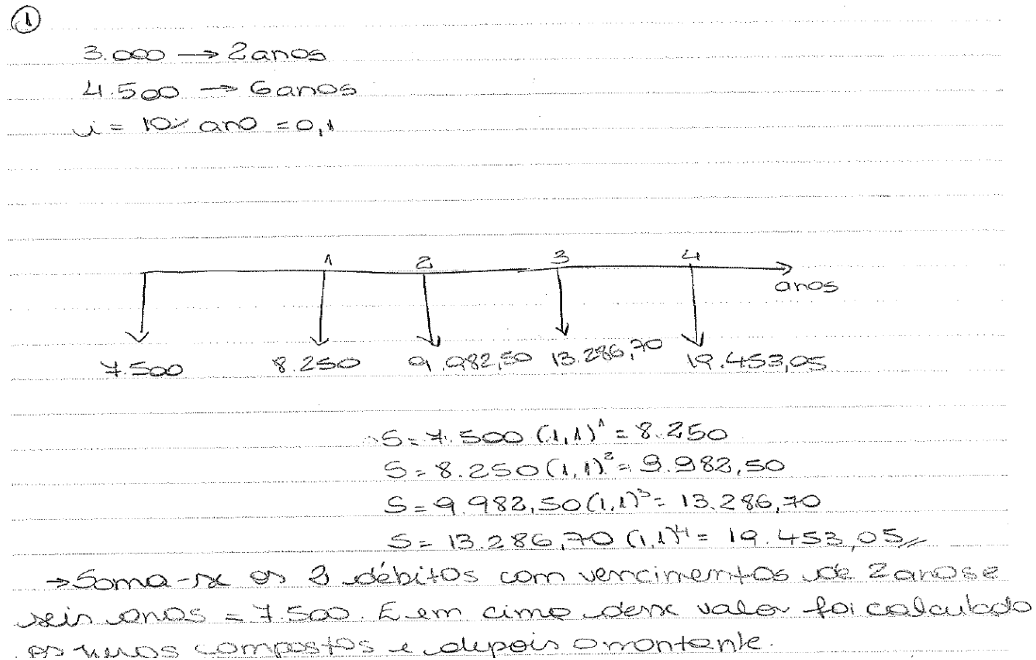 1
3.000 → 2 anos
4.500 → 6 anos
i = 10% ano = 0,1
1 2 3 4
anos
7.500 8.250 9.982,50 13.286,70 19.453,05
S = 7.500 (1,1)¹ = 8.250
S = 8.250 (1,1)² = 9.982,50
S = 9.982,50 (1,1)³ = 13.286,70
S = 13.286,70 (1,1)⁴ = 19.453,05
→ Soma-se os 2 débitos com vencimentos de 2 anos e
seis anos = 7.500. E em cima desse valor foi calculado
os juros compostos e depois o montante.